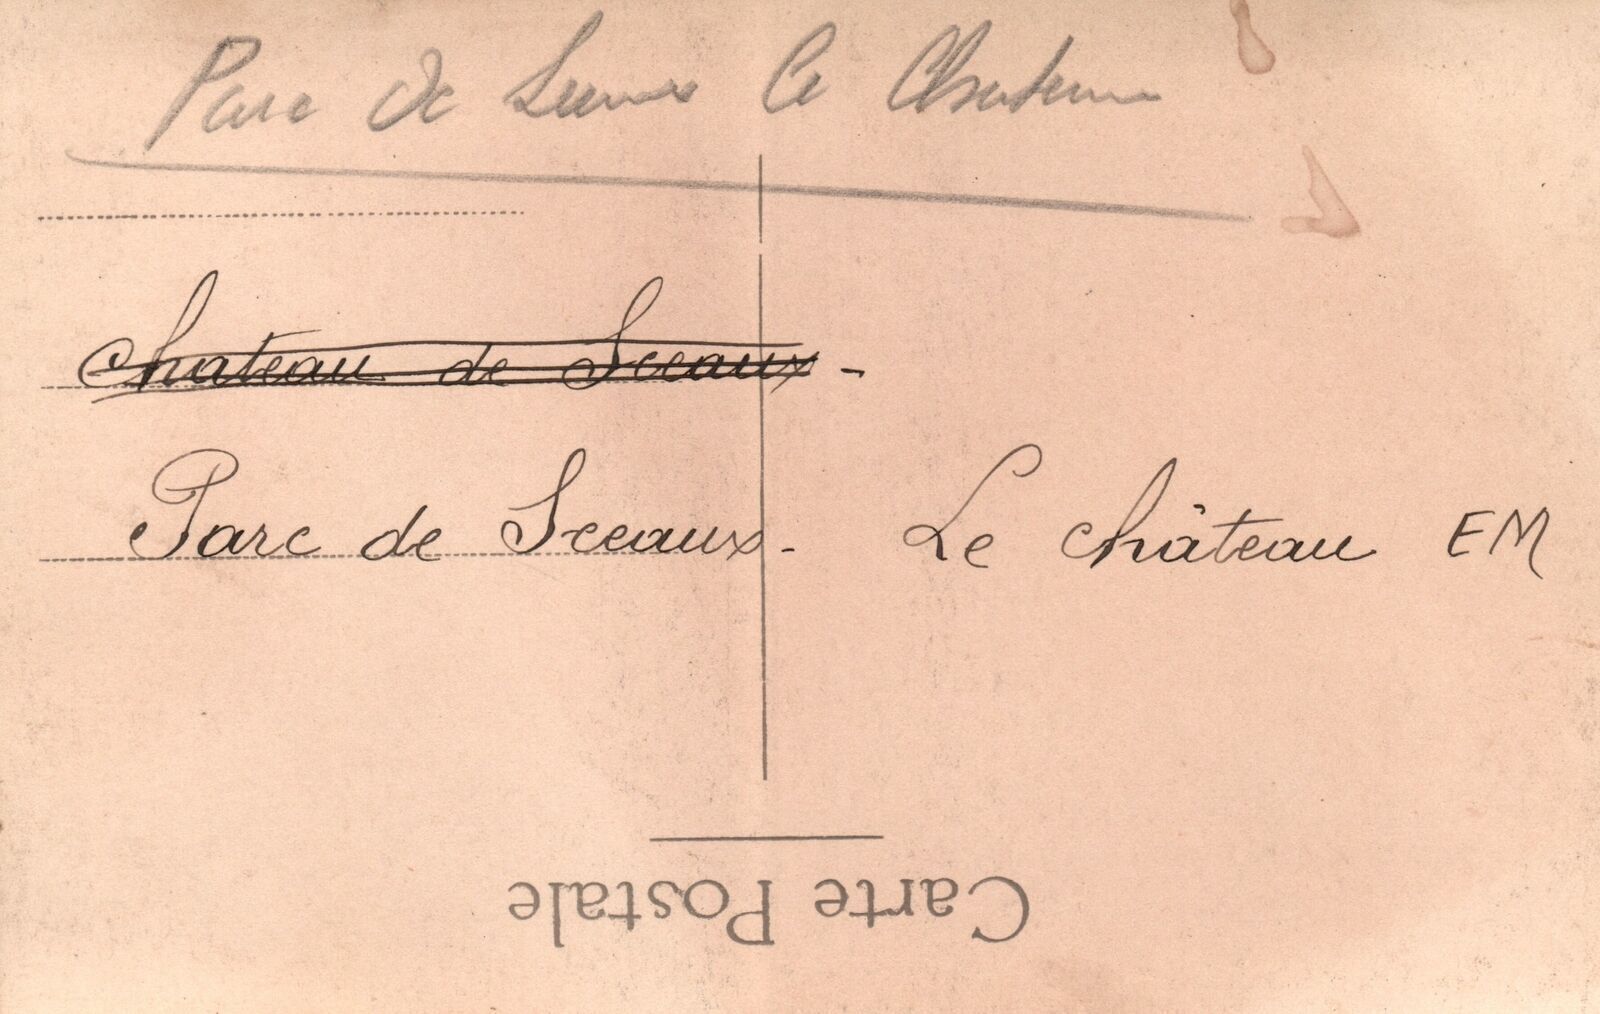 Parc de Sceaux Le Chateau
Chateau de Sceaux -
Parc de Sceaux - Le château EM
Carte Postale